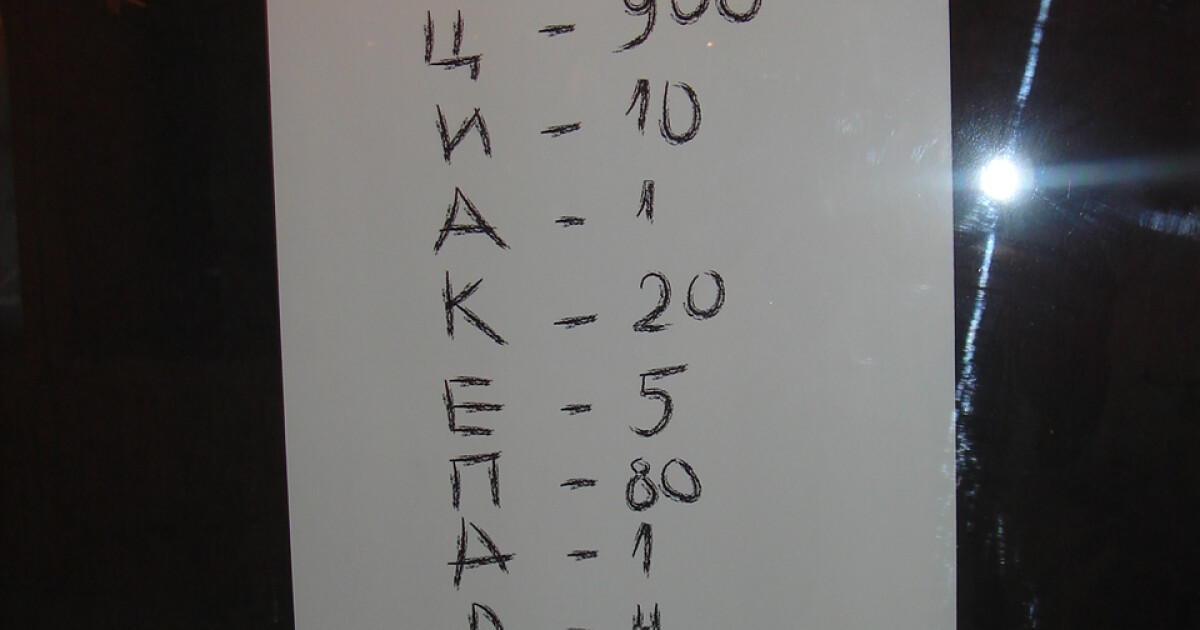 Ц - 900
И - 10
А - 1
К - 20
Е - 5
П - 80
А - 1